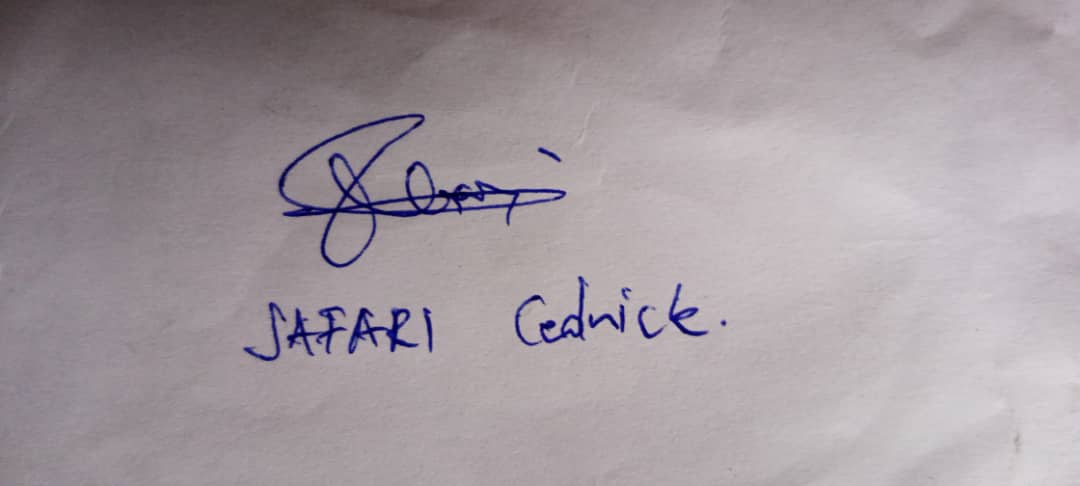 SAFARI Cedrick.